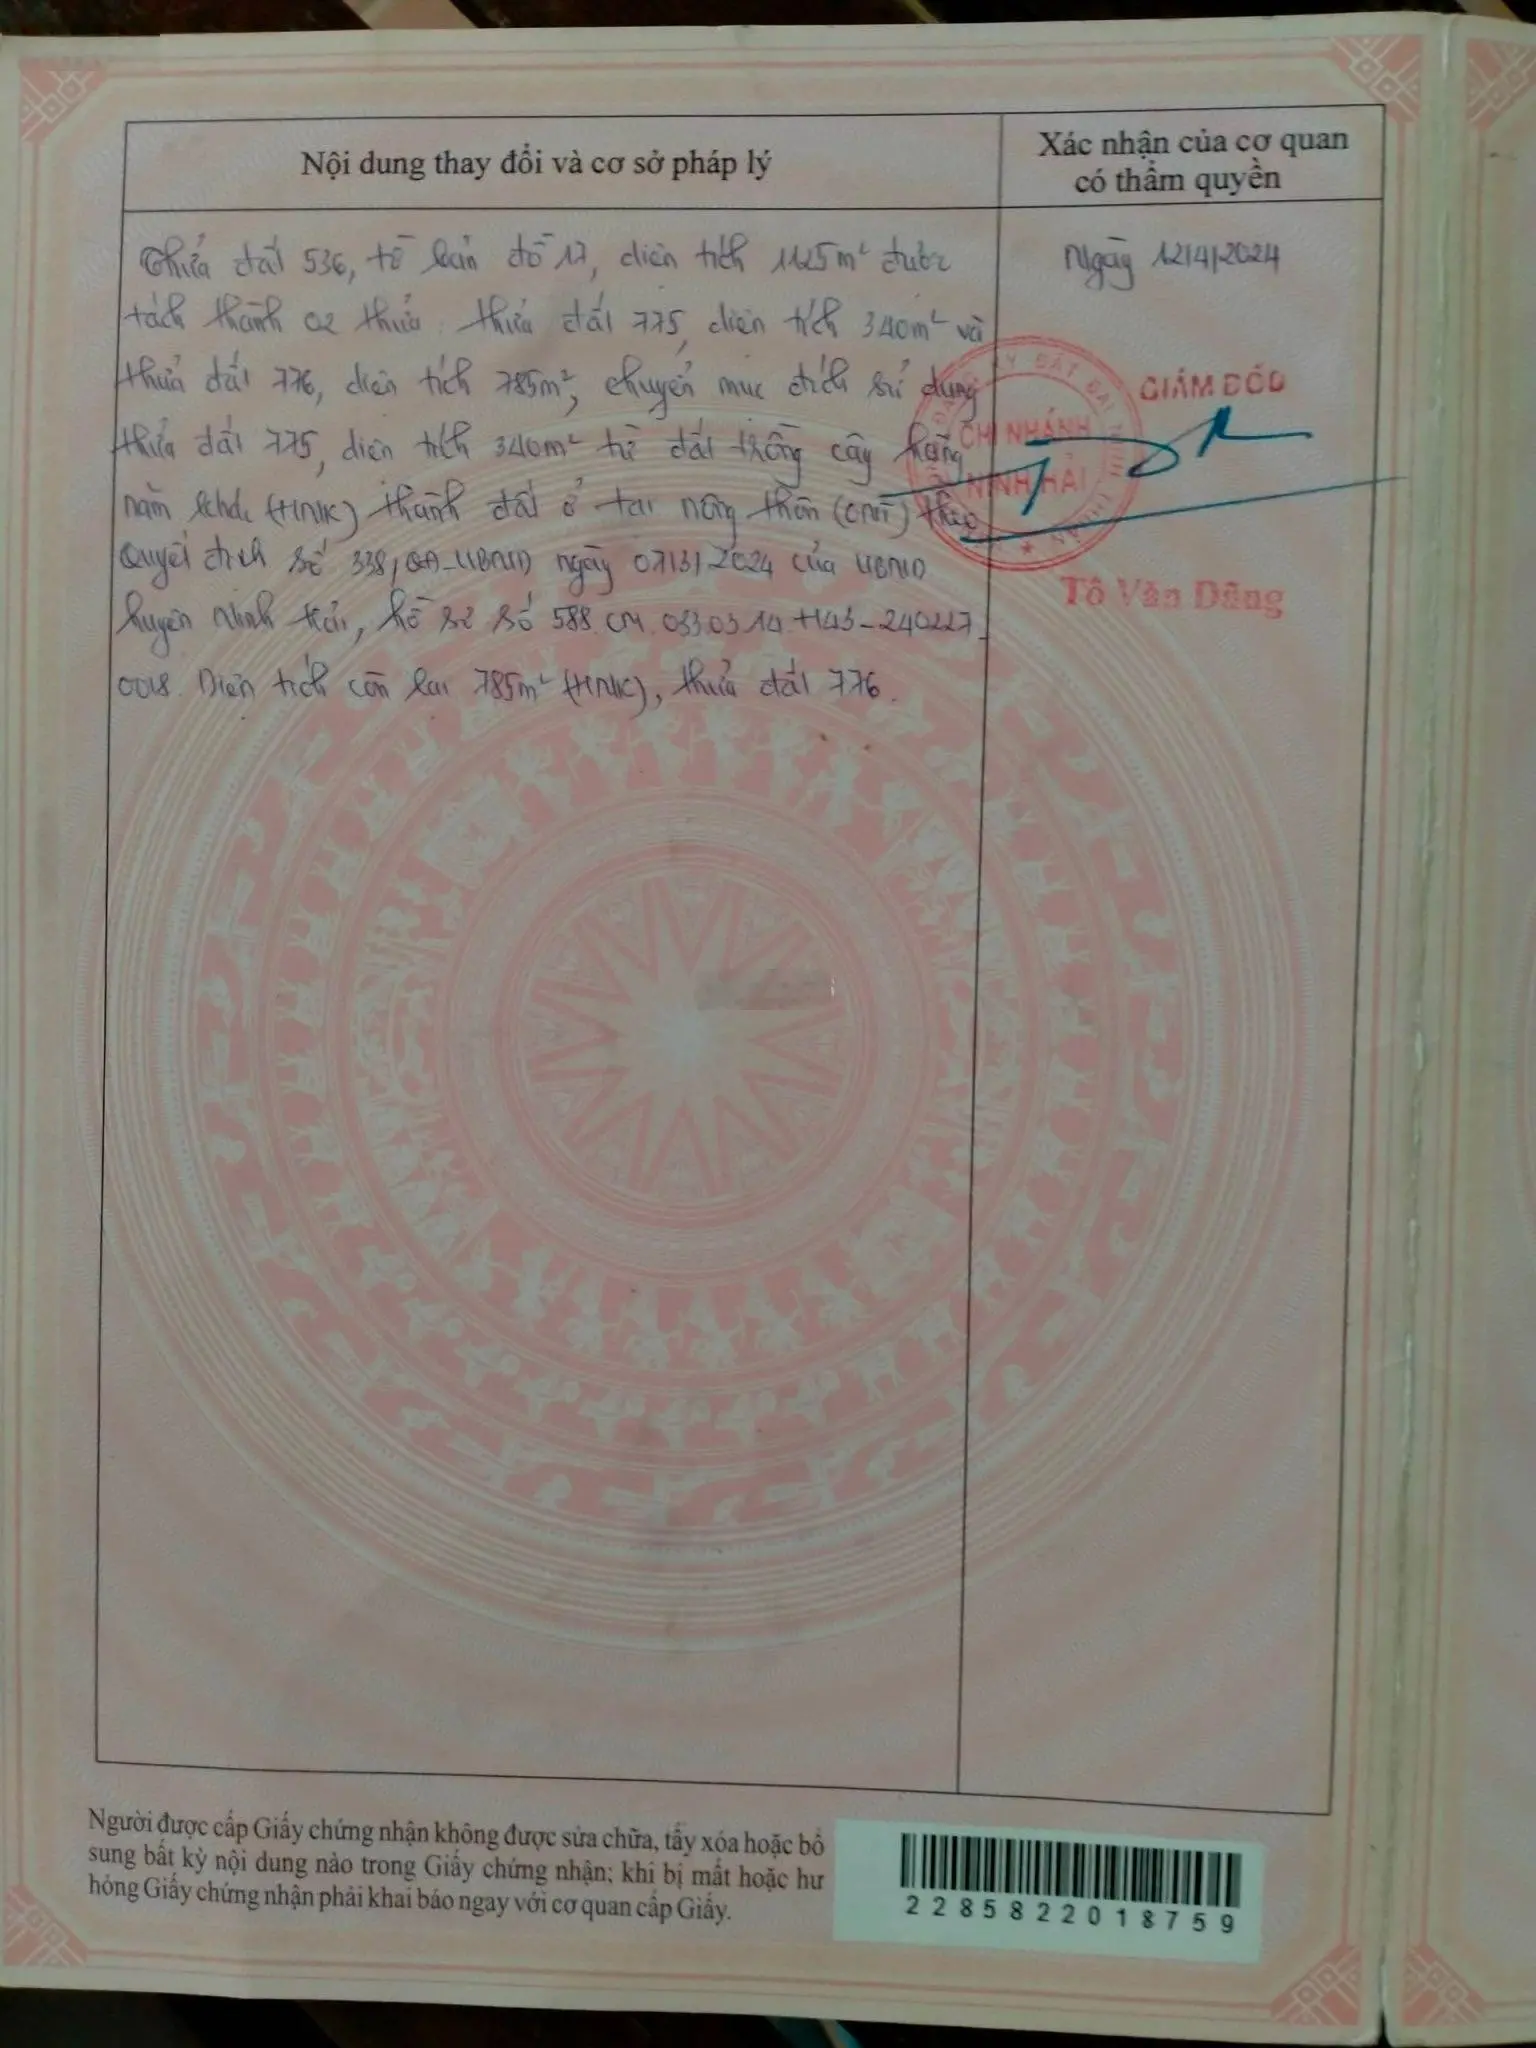 Nội dung thay đổi và cơ sở pháp lý
Xác nhận của cơ quan
có thẩm quyền
Thửa đất 536, tờ bản đồ 17, diện tích 1125m² được
tách thành 02 thửa: thửa đất 775, diện tích 340m² và
thửa đất 776, diện tích 785m², chuyển mục đích sử dụng
thửa đất 775, diện tích 340m² từ đất trồng cây hàng
năm khác (HNK) thành đất ở tại nông thôn (ONT) theo
Quyết định số 338/QĐ-UBND ngày 07/3/2024 của UBND
huyện Ninh Hải, hồ sơ số 588.CM.033.03.14.H43-240227-
0018. Diện tích còn lại 785m² (HNK), thửa đất 776.
Ngày 12/4/2024
GIÁM ĐỐC
CHI NHÁNH
NINH HẢI
Tô Văn Dũng
Người được cấp Giấy chứng nhận không được sửa chữa, tẩy xóa hoặc bổ
sung bất kỳ nội dung nào trong Giấy chứng nhận; khi bị mất hoặc hư
hỏng Giấy chứng nhận phải khai báo ngay với cơ quan cấp Giấy.
2285822018759